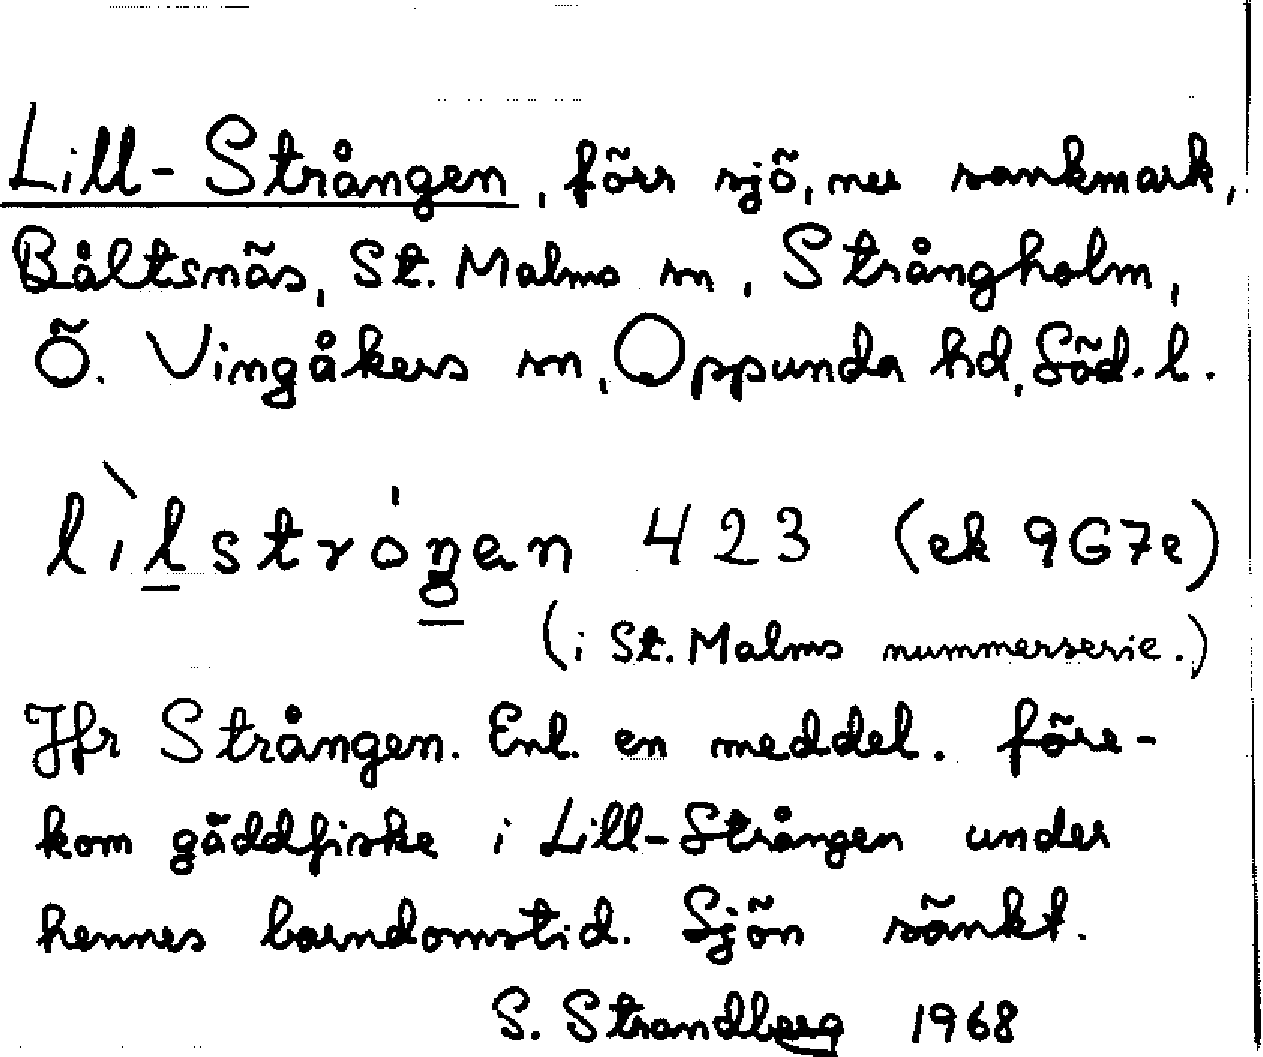 Lill-Strången, förr sjö, nu sankmark,
Båltsnäs, St. Malms sn, Strångholm,
Ö. Vingåkers sn, Oppunda hd, Söd. l.
lìlstróŋen 423 (ek 9G7e)
(i St. Malms nummerserie.)
Jfr Strången. Enl. en meddel. före-
kom gäddfiske i Lill-Strången under
hennes barndomstid. Sjön sänkt.
S. Strandberg 1968